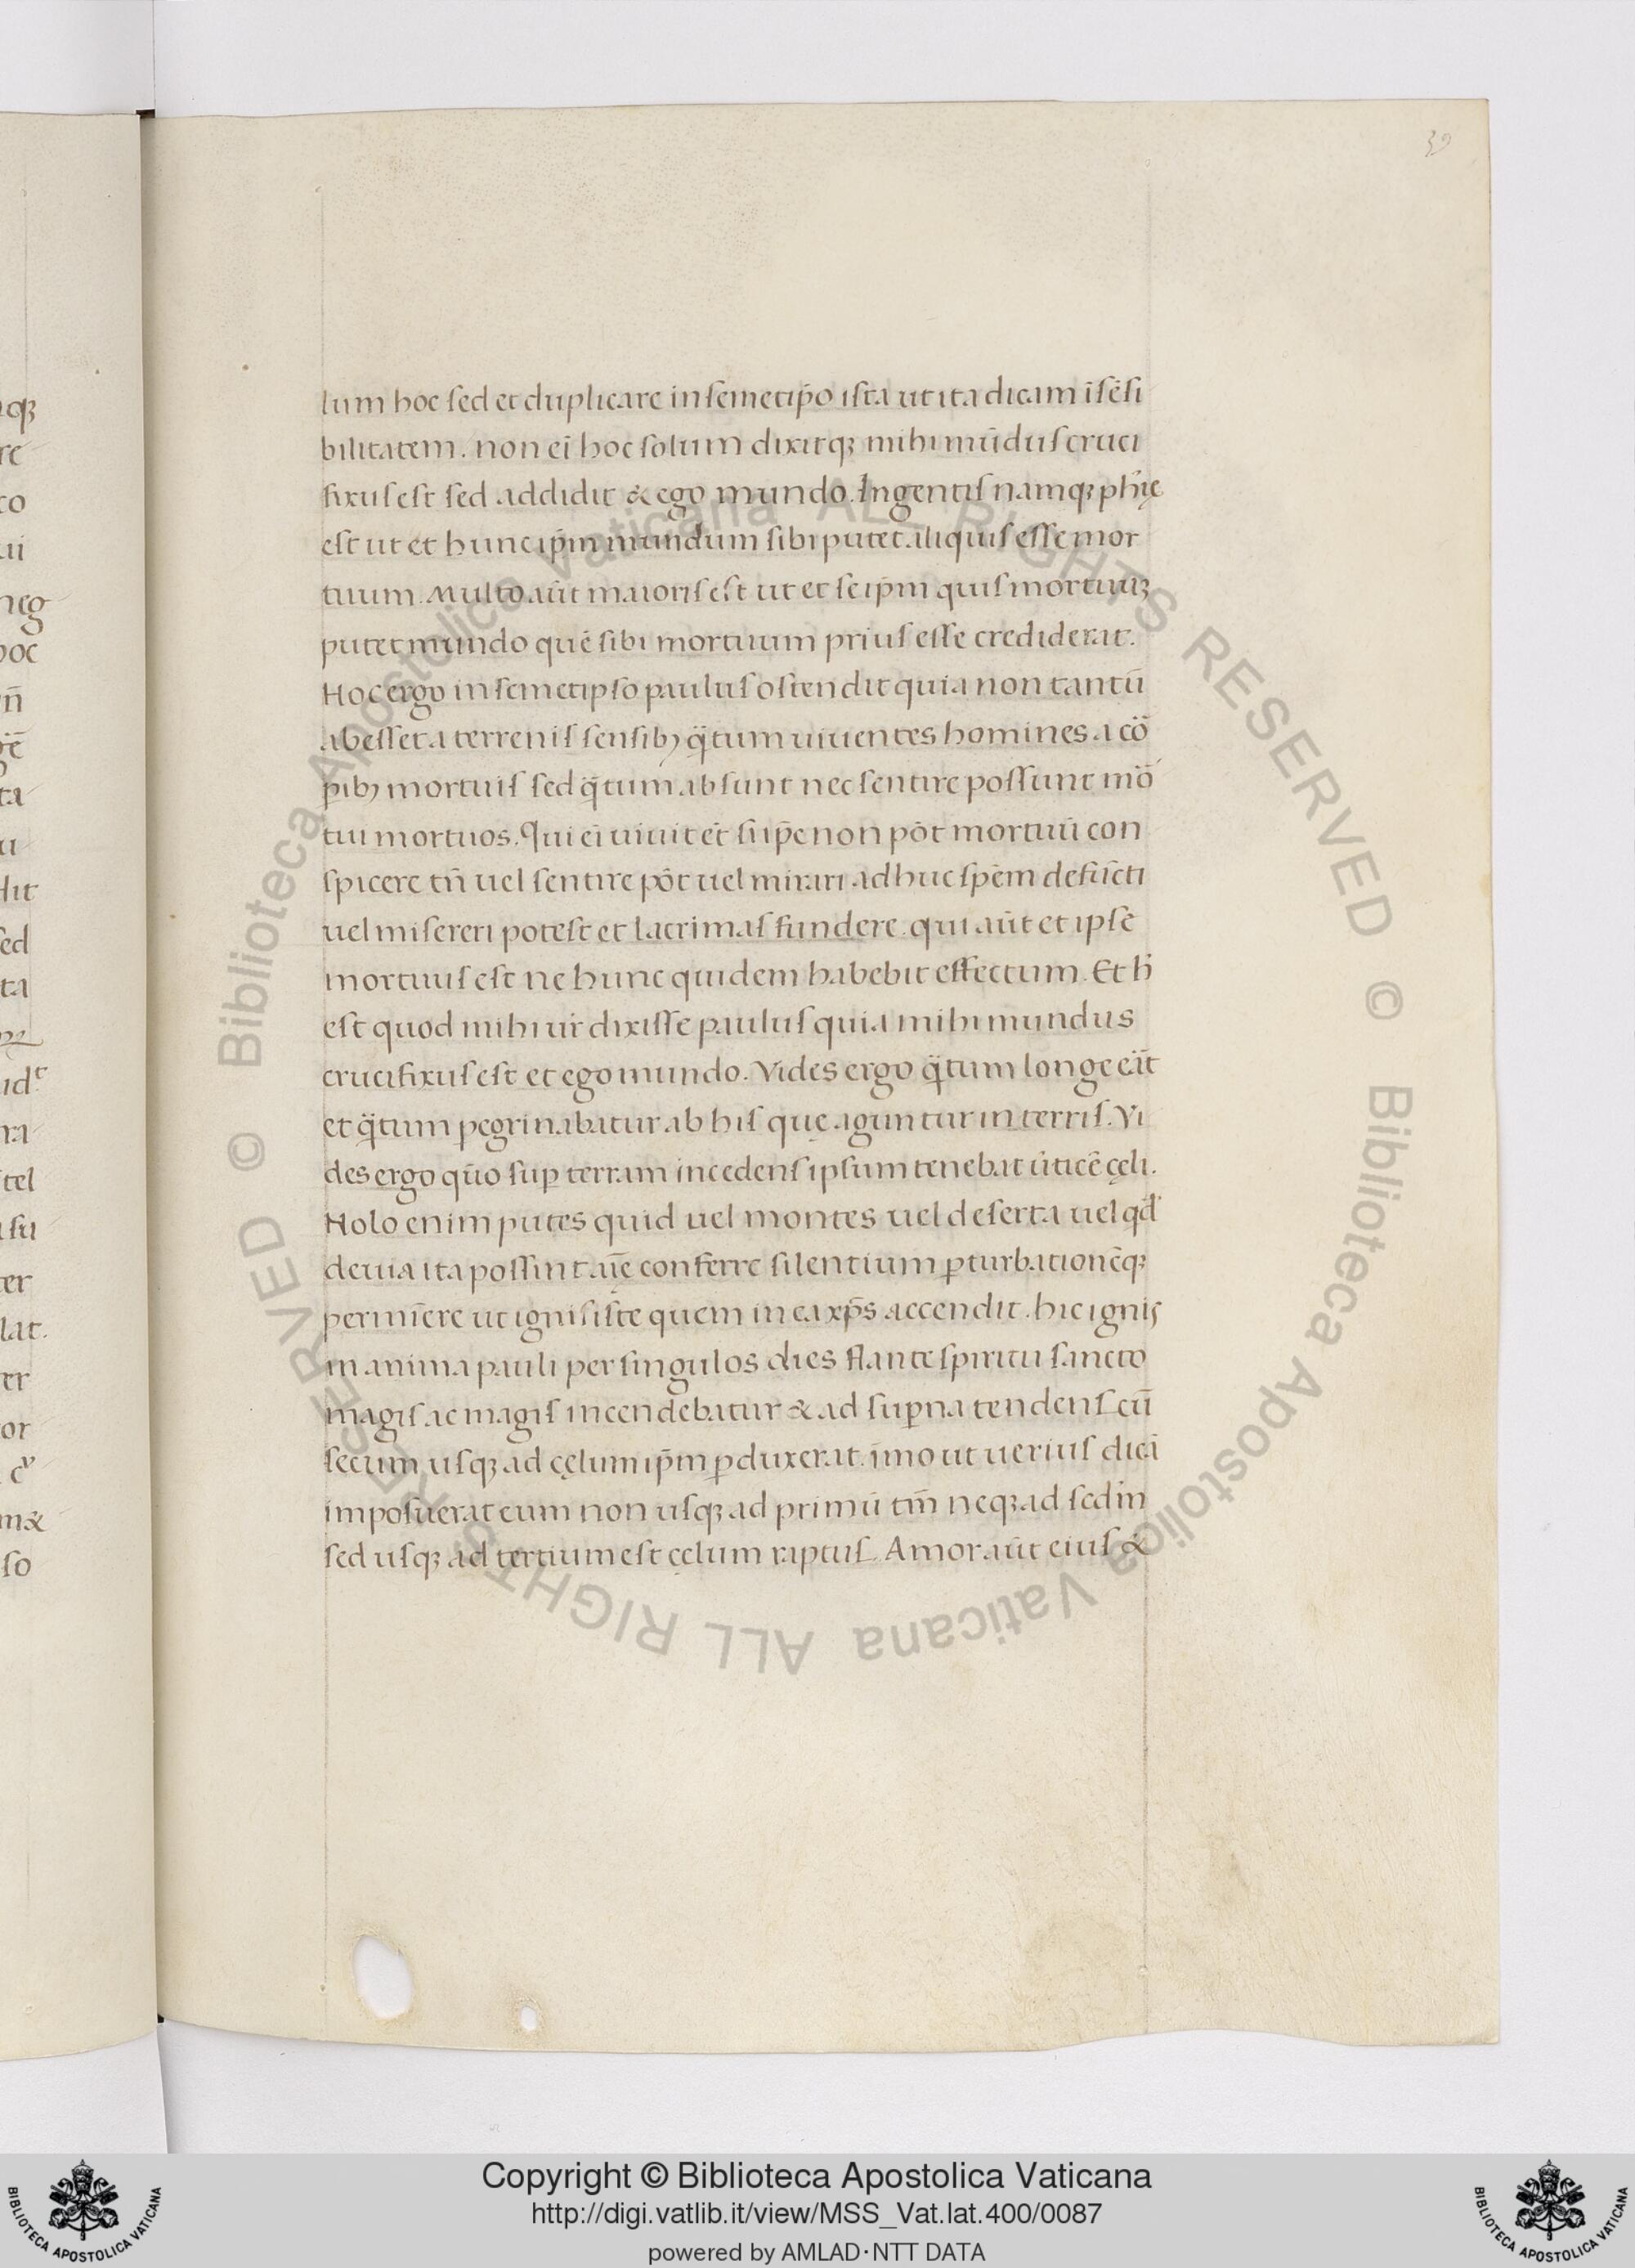 39
lum hoc sed et duplicare in semetip̄o ista ut ita dicam īsēsi
bilitatem. non eī hoc solum dixit qꝫ mihi mūdus cruci
fixus est sed addidit & ego mundo. Ingentis namqꝫ phīę
est ut et hunc ip̄m mundum sibi putet aliquis esse mor
tuum. Multo aūt maioris est ut et se ip̄m quis mortuuꝫ
putet mundo quē sibi mortuum prius esse crediderat.
Hoc ergo in semetipso paulus ostendit quia non tantū
abesset a terrenis sensibꝫ q̈tum uiuentes homines a cō
ꝑibꝫ mortuis sed q̈tum absunt nec sentire possunt mō
tui mortuos. Qui eī uiuit et sup̄e non pōt mortuū con
spicere tn̄ uel sentire pōt uel mirari adhuc spēm defūcti
uel misereri potest et lacrimas fundere. qui aūt et ipse
mortuus est ne hunc quidem habebit effectum. Et h̄
est quod mihi ur̄ dixisse paulus quia mihi mundus
crucifixus est et ego mundo. Vides ergo q̈tum longe eāt
et q̈tum ꝑegrinabatur ab his quę aguntur in terris. Vi
des ergo quō suꝑ terram incedens ipsum tenebat ūticē cęli.
Nolo enim putes quid uel montes uel deserta uel qd̓
deuia ita possint aīę conferre silentium ꝑturbationēqꝫ
perimēre ut ignis iste quem in ea xp̄s accendit. hic ignis
in anima pauli per singulos dies flante spiritu sancto
magis ac magis incendebatur & ad suꝑna tendens cū
secum usqꝫ ad cęlum ip̄m ꝑduxerat. īmo ut uerius dicā
imposuerat eum non usqꝫ ad primū tm̄ neqꝫ ad sed̄m
sed usqꝫ ad tertium est cęlum raptus. Amor aūt eius &
Copyright © Biblioteca Apostolica Vaticana
http://digi.vatlib.it/view/MSS_Vat.lat.400/0087
powered by AMLAD·NTT DATA